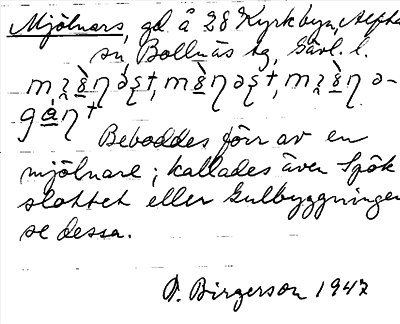 Mjölnars, gd å 28 Kyrkbyn, Alfta
sn, Bollnäs tg, Gävl. l.
Beboddes förr av en
mjölnare; kallades även Spök
slottet eller Gulbyggningen
se dessa.
P. Birgerson 1947